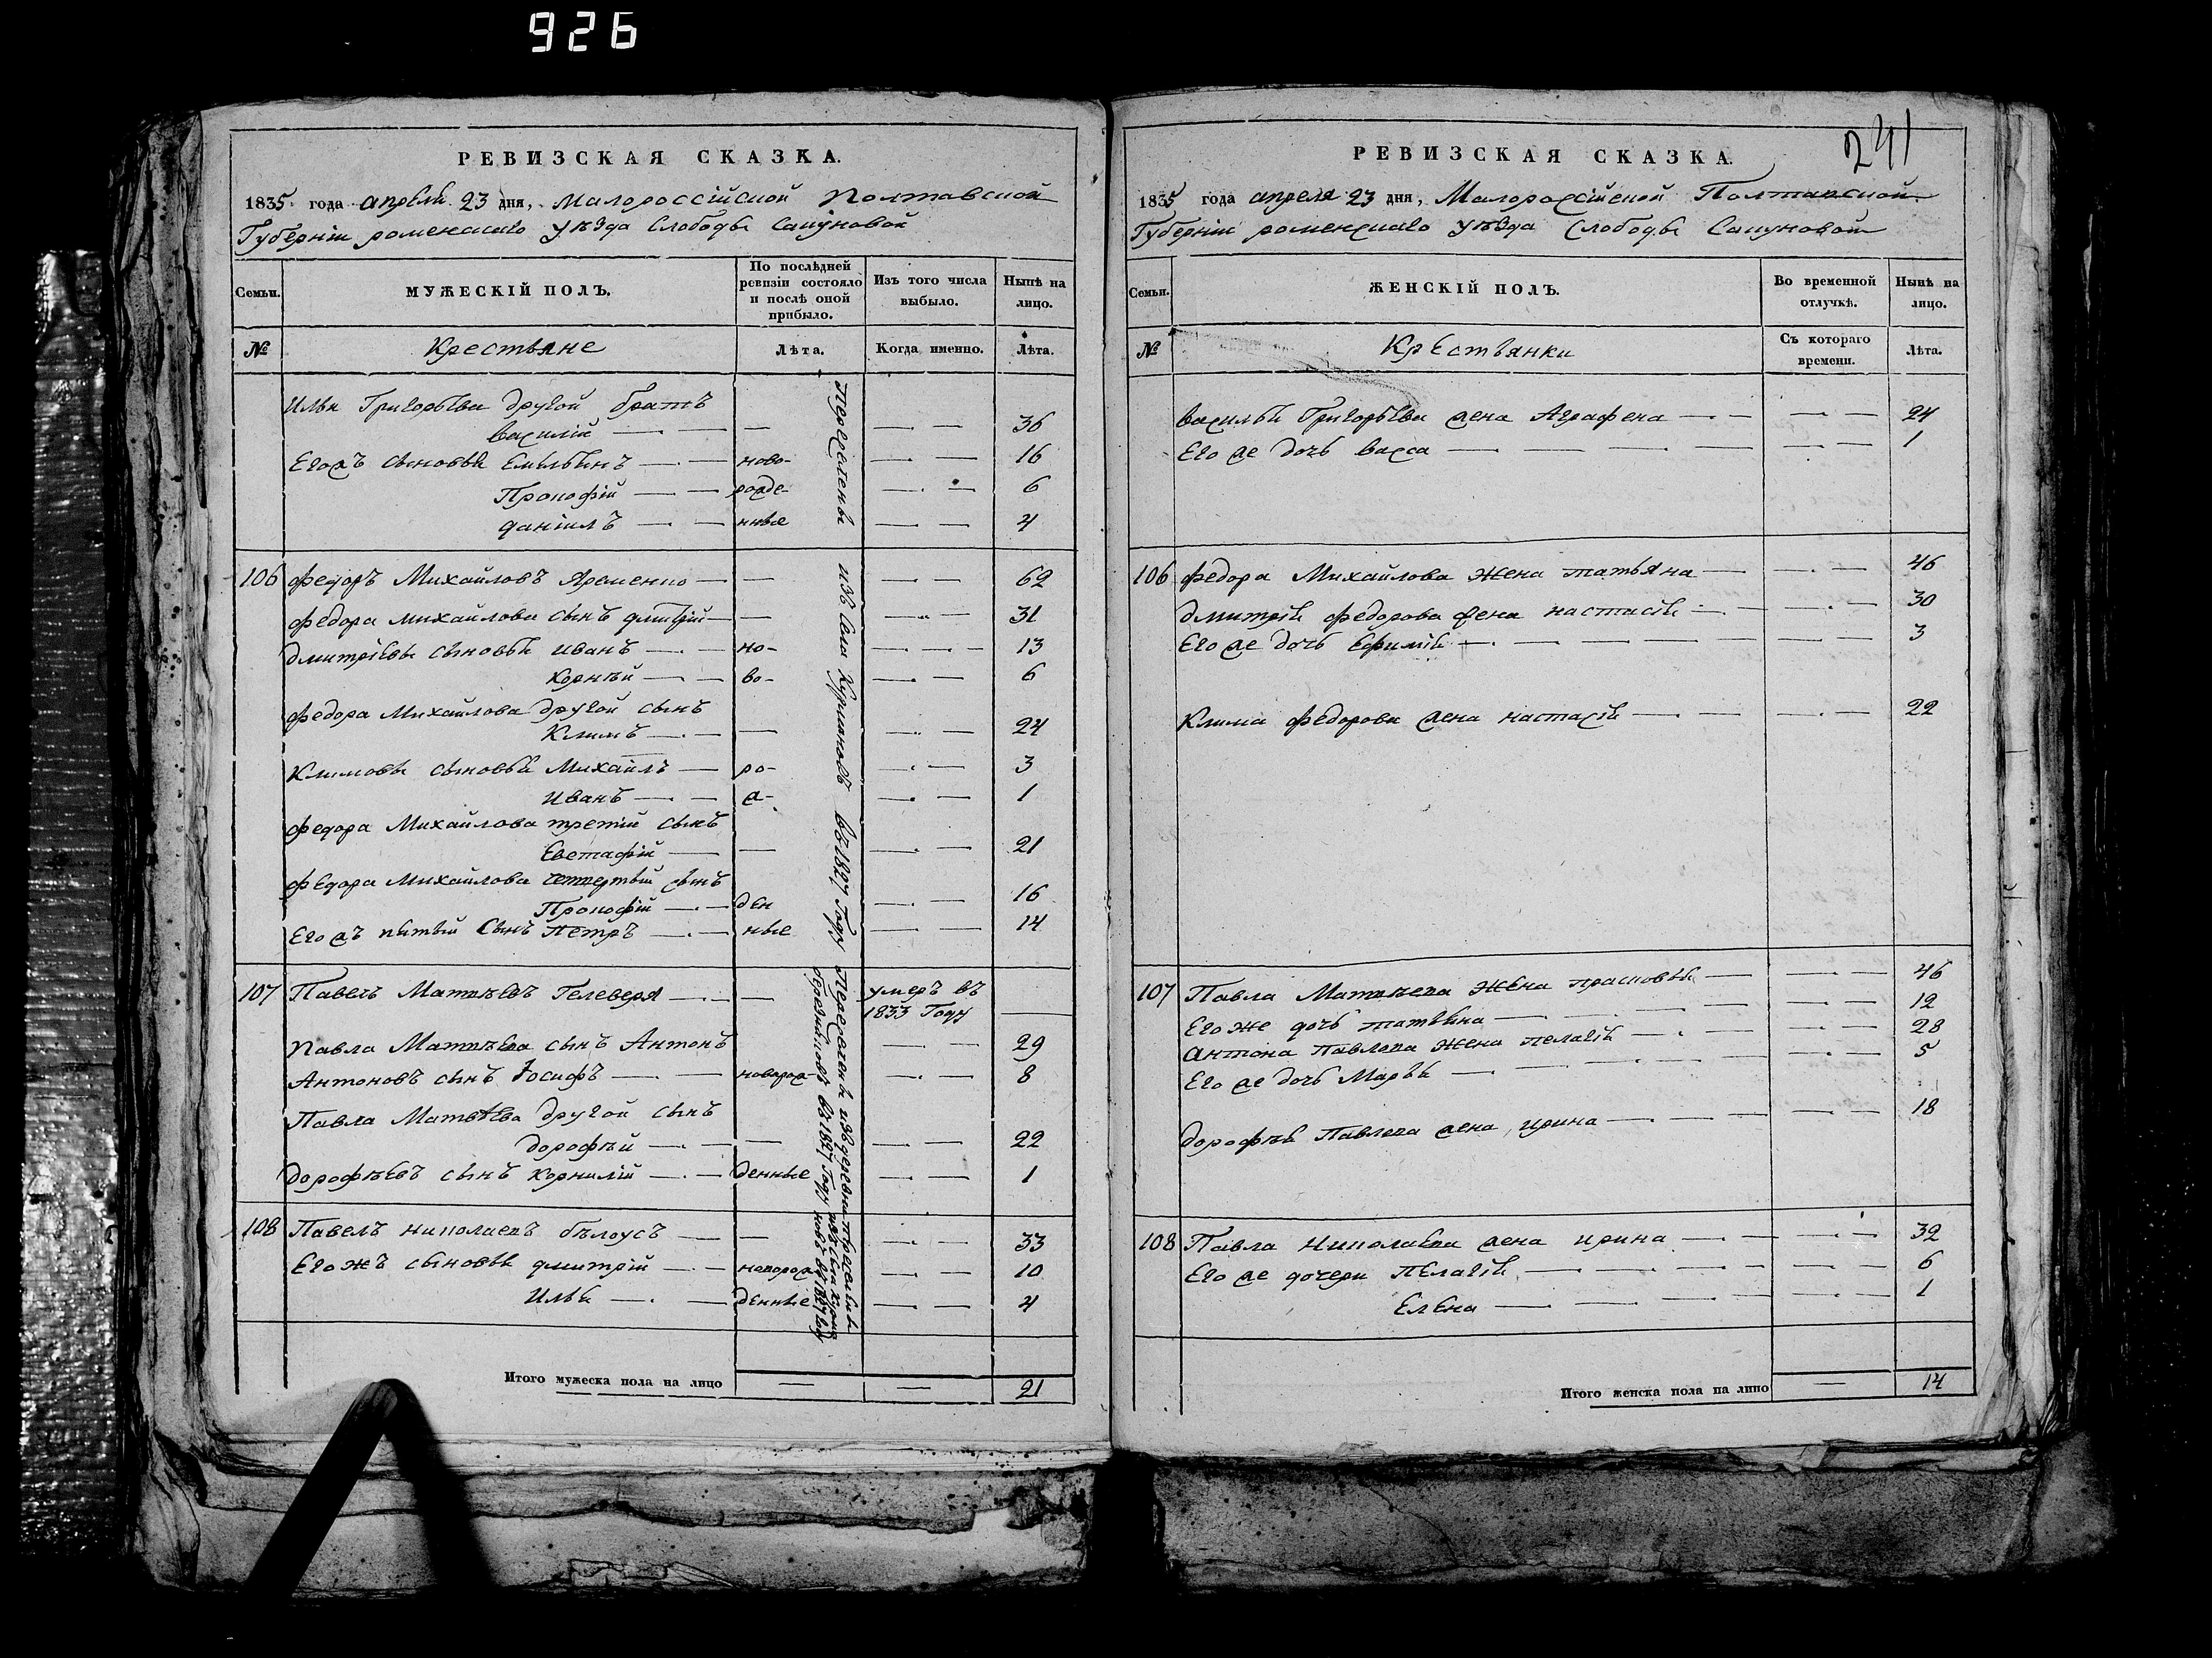 926
РЕВИЗСКАЯ СКАЗКА.
1835 года апреля 23 дня, Малороссійской Полтавской
Губерніи роменскаго уѣзда Слободы Сапуновой
Семьи.
МУЖЕСКІЙ ПОЛЪ.
По послѣдней ревизіи состояло и послѣ оной прибыло.
Изъ того числа выбыло.
Нынѣ на лицо.
№
Крестьяне
Лѣта.
Когда именно.
Лѣта.
Ильи Григорьева другой братъ
василій — — — 36
Егожъ сыновья Емельянъ — ново- — 16
Прокофій — рожде- — 6
даніилъ — нные — 4
106 федоръ Михайловъ Яременко — — — 62
федора михайлова сынъ дмитрій — — — 31
дмитріевы сыновья иванъ — но- — 13
Корнѣй — во- — 6
федора Михайлова другой сынъ
Климъ — — — 24
Климовы сыновья Михаилъ — ро- — 3
Иванъ — ж- — 1
федора Михайлова третій сынъ
Евстафій — — — 21
федора Михайлова четвертый сынъ
Прокофій — ден — 16
Егожъ пятый Сынъ Петръ — ные — 14
107 Павелъ Матвѣевъ Гелеверя — — умеръ въ
1833 Году —
Павла Матвѣева сынъ Антонъ — — 29
Антоновъ сынъ Іосифъ — новорож — 8
Павла Матвѣева другой сынъ
дорофѣй — — — 22
дорофѣевъ сынъ Корнилій — денные — 1
108 Павелъ николаевъ бѣлоусъ — — — 33
Его жъ сыновья дмитрій — новорож — 10
Илья — денные — 4
Переселены изъ Села Курмановъ въ 1827 Году
Переселены изъ деревни
въ 1827 Году
Итого мужеска пола на лицо — — 21
241
РЕВИЗСКАЯ СКАЗКА.
1835 года апреля 23 дня, Малороссійской Полтавской
Губерніи роменскаго уѣзда Слободы Сапуновой
Семьи.
ЖЕНСКІЙ ПОЛЪ.
Во временной отлучкѣ.
Нынѣ на лицо.
№
Крестьянки
Съ котораго времени.
Лѣта.
василья Григорьева жена Аграфена — — 24
Его же дочь васса — — 1
106 федора Михайлова жена татьяна — — 46
дмитрія федорова жена настасія — — 30
Его же дочь Ефимія — — 3
Клима федорова жена настасія — — 22
107 Павла Матвѣева жена прасковья — — 46
Его же дочь татьяна — — 12
антона Павлова жена пелагія — — 28
Его же дочь Марья — — 5
дорофѣя Павлова жена ирина — — 18
108 Павла николаева жена ирина — — 32
Его же дочери пелагія — — 6
Елена — — 1
Итого женска пола на лицо — 14